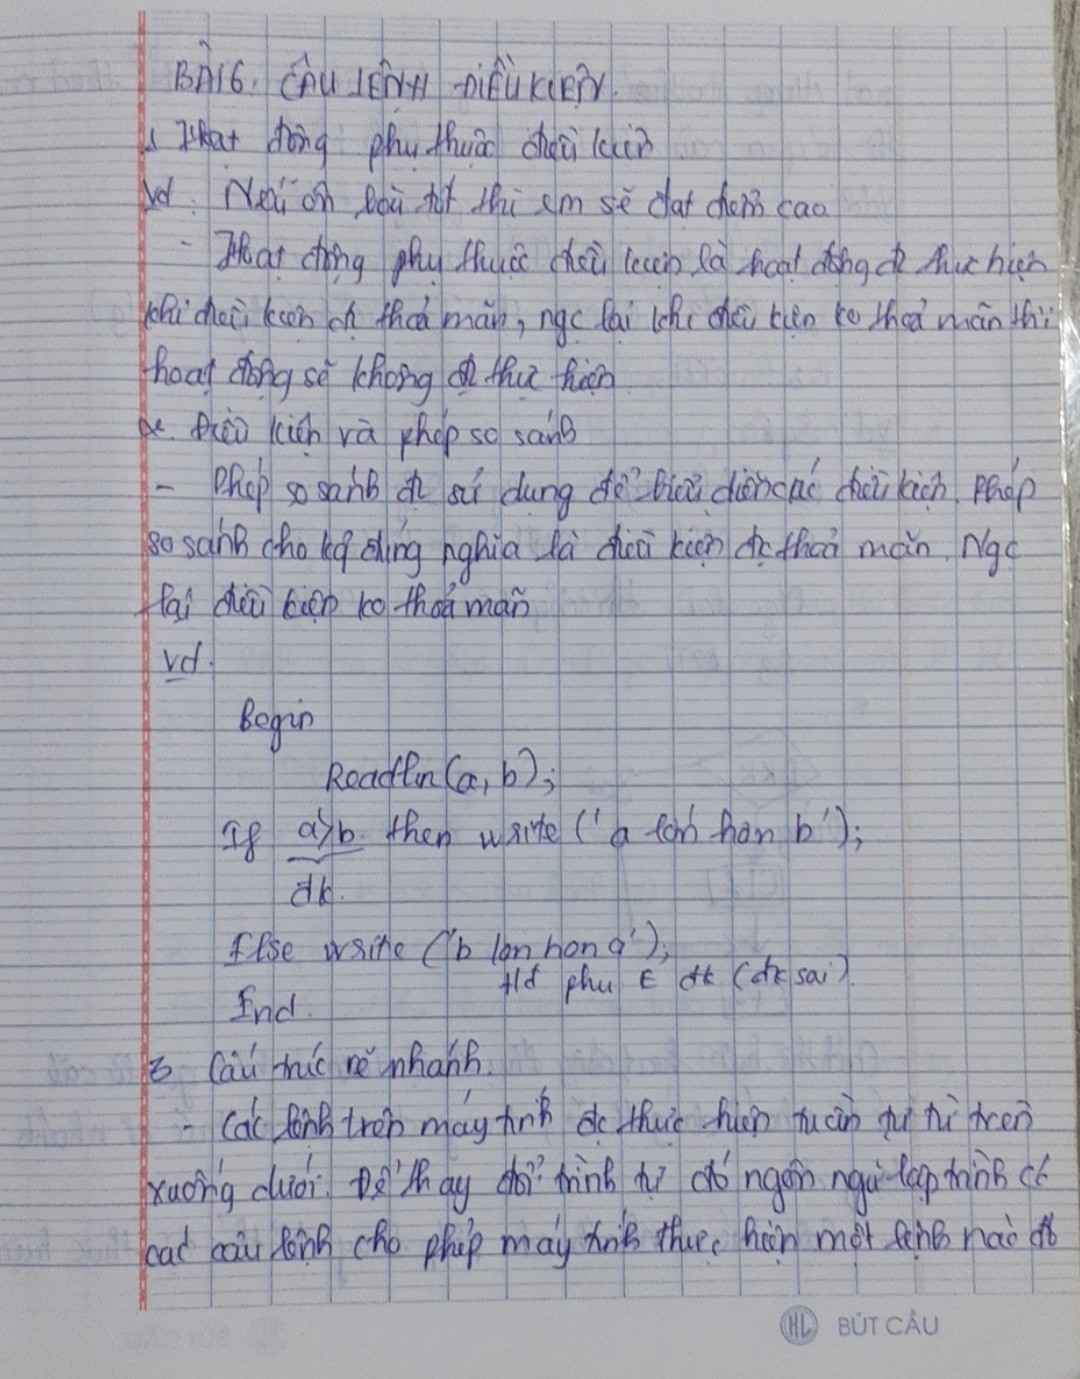 BÀI 6. CÂU LỆNH ĐIỀU KIỆN.
1 Hoạt động phụ thuộc điều kiện
Vd: Nếu ôn bài tốt thì em sẽ đạt điểm cao
- Hoạt động phụ thuộc điều kiện là hoạt động đc thực hiện
khi điều kiện đc thoả mãn, ngc lại khi điều kiện ko thoả mãn thì
hoạt động sẽ không đc thực hiện
2. Điều kiện và phép so sánh
- Phép so sánh đc sử dụng để biểu diễn các điều kiện. Phép
so sánh cho kq đúng nghĩa là điều kiện đc thoả mãn. Ngc
lại điều kiện ko thoả mãn
vd.
Begin
Readln(a, b);
If a>b then write ('a lớn hơn b');
đk.
Else write ('b lon hon a');
Hđ phụ E đk (đk sai).
End.
3 Cấu trúc rẽ nhánh.
- Các lệnh trên máy tính đc thực hiện tuần tự từ trên
xuống dưới. Để thay đổi trình tự đó ngôn ngữ lập trình có
các câu lệnh cho phép máy tính thực hiện một lệnh nào đó
HL BÚT CÂU